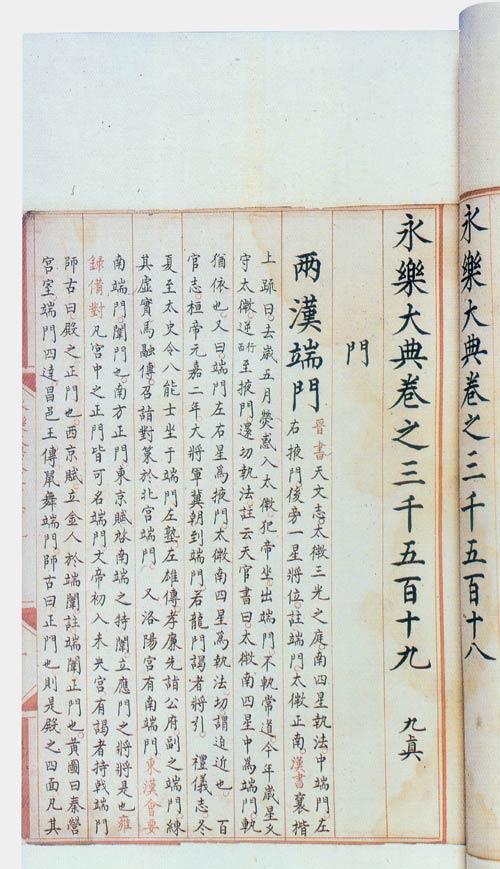 永樂大典卷之三千五百十八
永樂大典卷之三千五百十九 九真
門
兩漢端門
晉書天文志太微三光之庭南四星執法中端門左
右掖門後旁一星將位註端門太微正南漢書襄楷
上疏曰去歲五月熒惑入太微犯帝坐出端門不軌常道今年歲星久
守太微逆行西至掖門還切執法註云天官書曰太微南四星中為端門執
猶依也又曰端門左右星為掖門太微南四星為執法切謂迫近也 百
官志桓帝元嘉二年大將軍冀朝到端門若龍門謁者將引 禮儀志冬
夏至太史令八能士坐于端門左塾左雄傳孝廉先詣公府副之端門練
其虛實馬融傳召詣對策於北宮端門 又洛陽宮有南端門東漢會要
南端門闈門也南方正門東京賦啟南端之特闈立應門之將將是也雍
錄備對凡宮中之正門皆可名端門文帝初入未央宮有謁者持戟端門
師古曰殿之正門也西京賦立金人於端闈註端闈正門也黃圖曰秦營
宮室端門四達昌邑王傳嚴舞端門師古曰正門也則是殿之四面凡其